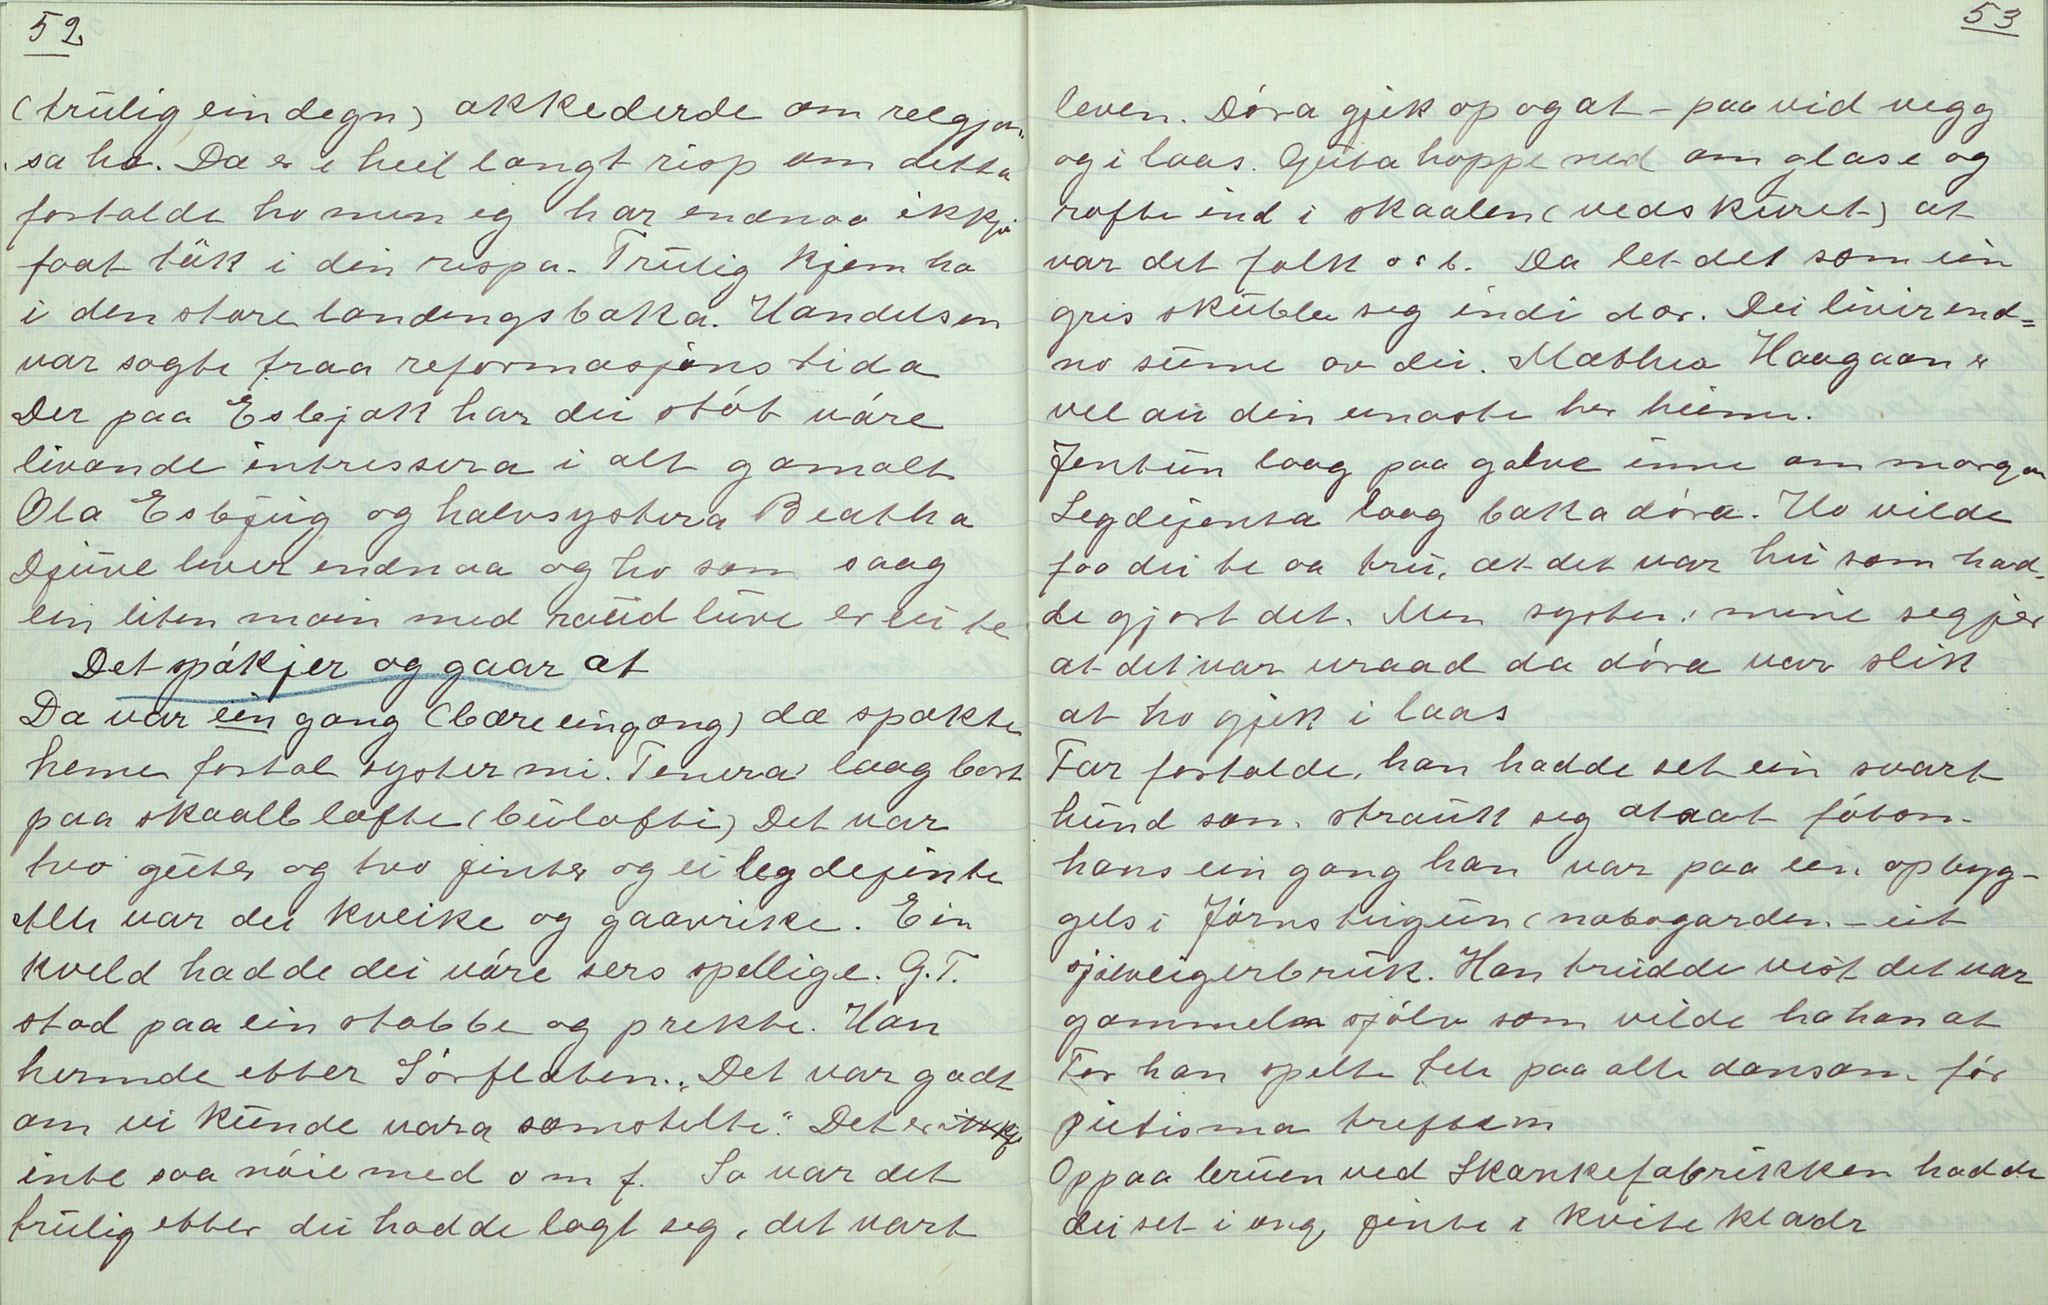 52
(trulig ein degn) akkederde om relgjon
sa ho. Da er i heil langt risp om detta
fortalde ho men eg har endnaa ikkje
faat tak i din rispa. Trulig kjem ho
i den store landingsbaka. Handelsen
var sagte fraa reformasjons tida
Der paa Esbjøk har dei støt våre
livande intressera i alt gamalt
Ola Esbjüig og halvsystera Beatha
Djuve lever endnaa og ho som saag
ein liten main med raud luve er ei te
Det spökjer og gaar at
Da var ein gang (bære ein gang) dæ spøkte
heme fortal syster mi. Tenera laag bort
paa skaallofte (buloftе) Det var
tvo guter og tvo jinter og ei legdejinte
Alle var dei kveike og gaavrike. Ein
kveld hadde dei våre sers spellige. G.T.
stod paa ein stabbe og prekte. Han
hermde etter Sørflaten. "Det var godt
om vi kunde vara samstelte." Det er ikkje
inte saa nöie med o m f. So var det
trulig etter dei hadde lagt seg, det vart
53
leven. Döra gjek op og at - paa vid vegg
og i laas. Guta hoppe ned om glase og
rafte ind i skaalen (vedskuret) at
var det folk ost. Da let det som ein
gris skubla seg indi dør. Dei livir end=
no sume av dei. Mathea Haagaan er
vel au din enaste her heime.
Jentun laag paa golve inne om morgon
Legdejenta laag baka döra. Ho vilde
faa dei te aa tru, at det var hu som had-
de gjort det. Men syster mine segjer
at det var uraad da döra var slik
at ho gjek i laas
Far fortalde, han hadde set ein svart
hund som strauk seg ataat fötom
hans ein gang han var paa ein opbyg-
gels i Jörnstugun (nabogarden - eit
sjölveigerbruk. Han trudde vist det var
gammeln sjölv som vilde ha han at
For han spelte fele paa alle dansom för
pietisma treftem
Oppaa bruen ved Skankefabrikken hadde
dei set i ong jinte i kvite klædr